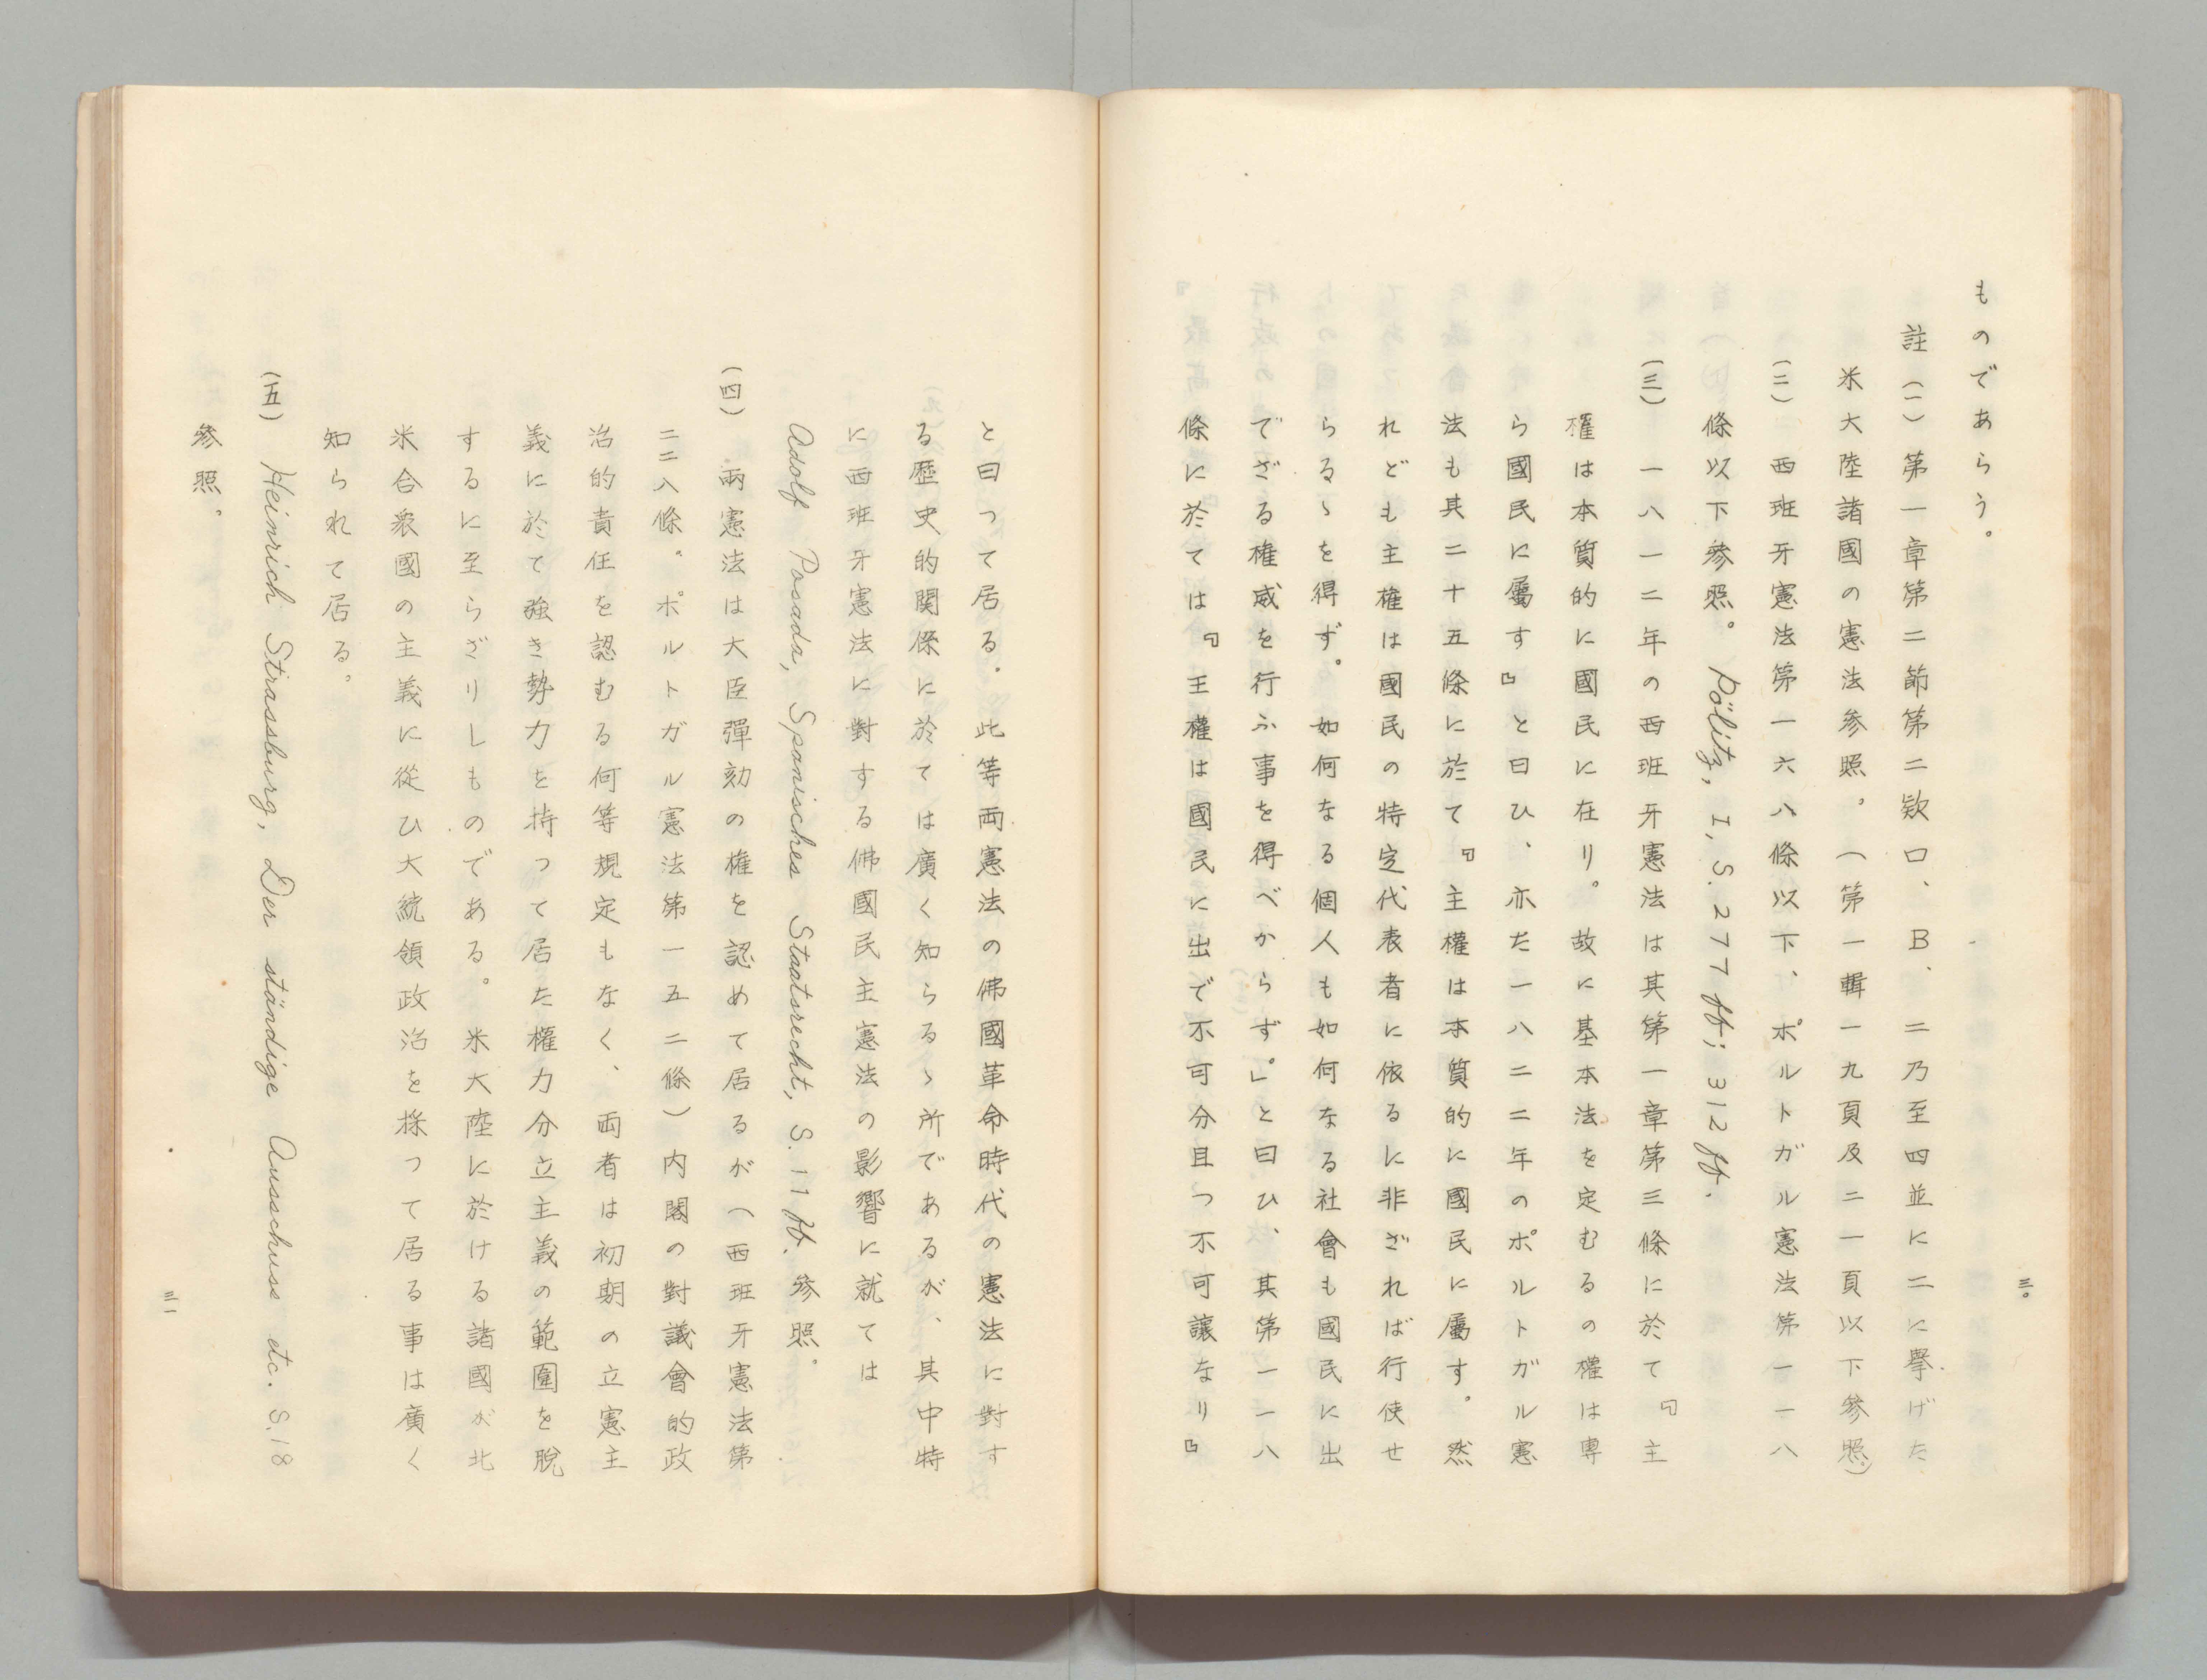 ものであらう。
註(一)第一章第二節第二欵ロ、B、二乃至四並に二に擧げた
米大陸諸國の憲法参照。(第一輯一九頁及二一頁以下參照)
(二)西班牙憲法第一六八條以下、ポルトガル憲法第一一八
條以下參照。Pölitz, I, S. 277 ff; 312 ff.
(三)一八一二年の西班牙憲法は其第一章第三條に於て『主
權は本質的に國民に在り。故に基本法を定むるの權は專
ら國民に屬す』と曰ひ、亦た一八二二年のポルトガル憲
法も其二十五條に於て『主權は本質的に國民に屬す。然
れども主權は國民の特定代表者に依るに非ざれば行使せ
らるゝを得ず。如何なる個人も如何なる社會も國民に出
でざる権威を行ふ事を得べからず。」と曰ひ、其第一一八
條に於ては『王權は國民に出で不可分且つ不可讓なり』
三〇
と曰って居る。此等両憲法の佛國革命時代の憲法に對す
る歴史的関係に於ては廣く知らるゝ所であるが、其中特
に西班牙憲法に對する佛國民主憲法の影響に就ては
Adolf Posada, Spanisches Staatsrecht, S. 11 ff. 參照。
(四)両憲法は大臣彈劾の権を認めて居るが(西班牙憲法第
二二八條。ポルトガル憲法第一五二條)内閣の對議會的政
治的責任を認むる何等規定もなく、両者は初期の立憲主
義に於て強き勢力を持つて居た權力分立主義の範圍を脫
するに至らざりしものである。米大陸に於ける諸國が北
米合衆國の主義に從ひ大統領政治を採つて居る事は廣く
知られて居る。
(五)Heinrich Strassburg, Der ständige Ausschuss etc. S. 18
參照。
三一